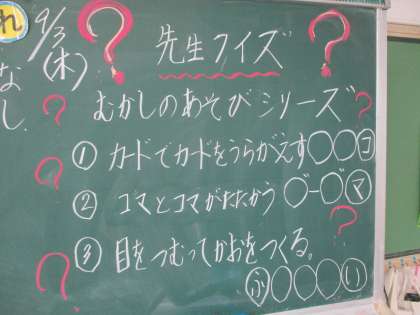 れ
9/3(木)
なし
？先生クイズ？
むかしのあそびシリーズ？
① カードでカードをうらがえす○○コ
② コマとコマがたたかう ○゛ー○゛マ
③ 目をつむってかおをつくる。
ふ○○○い